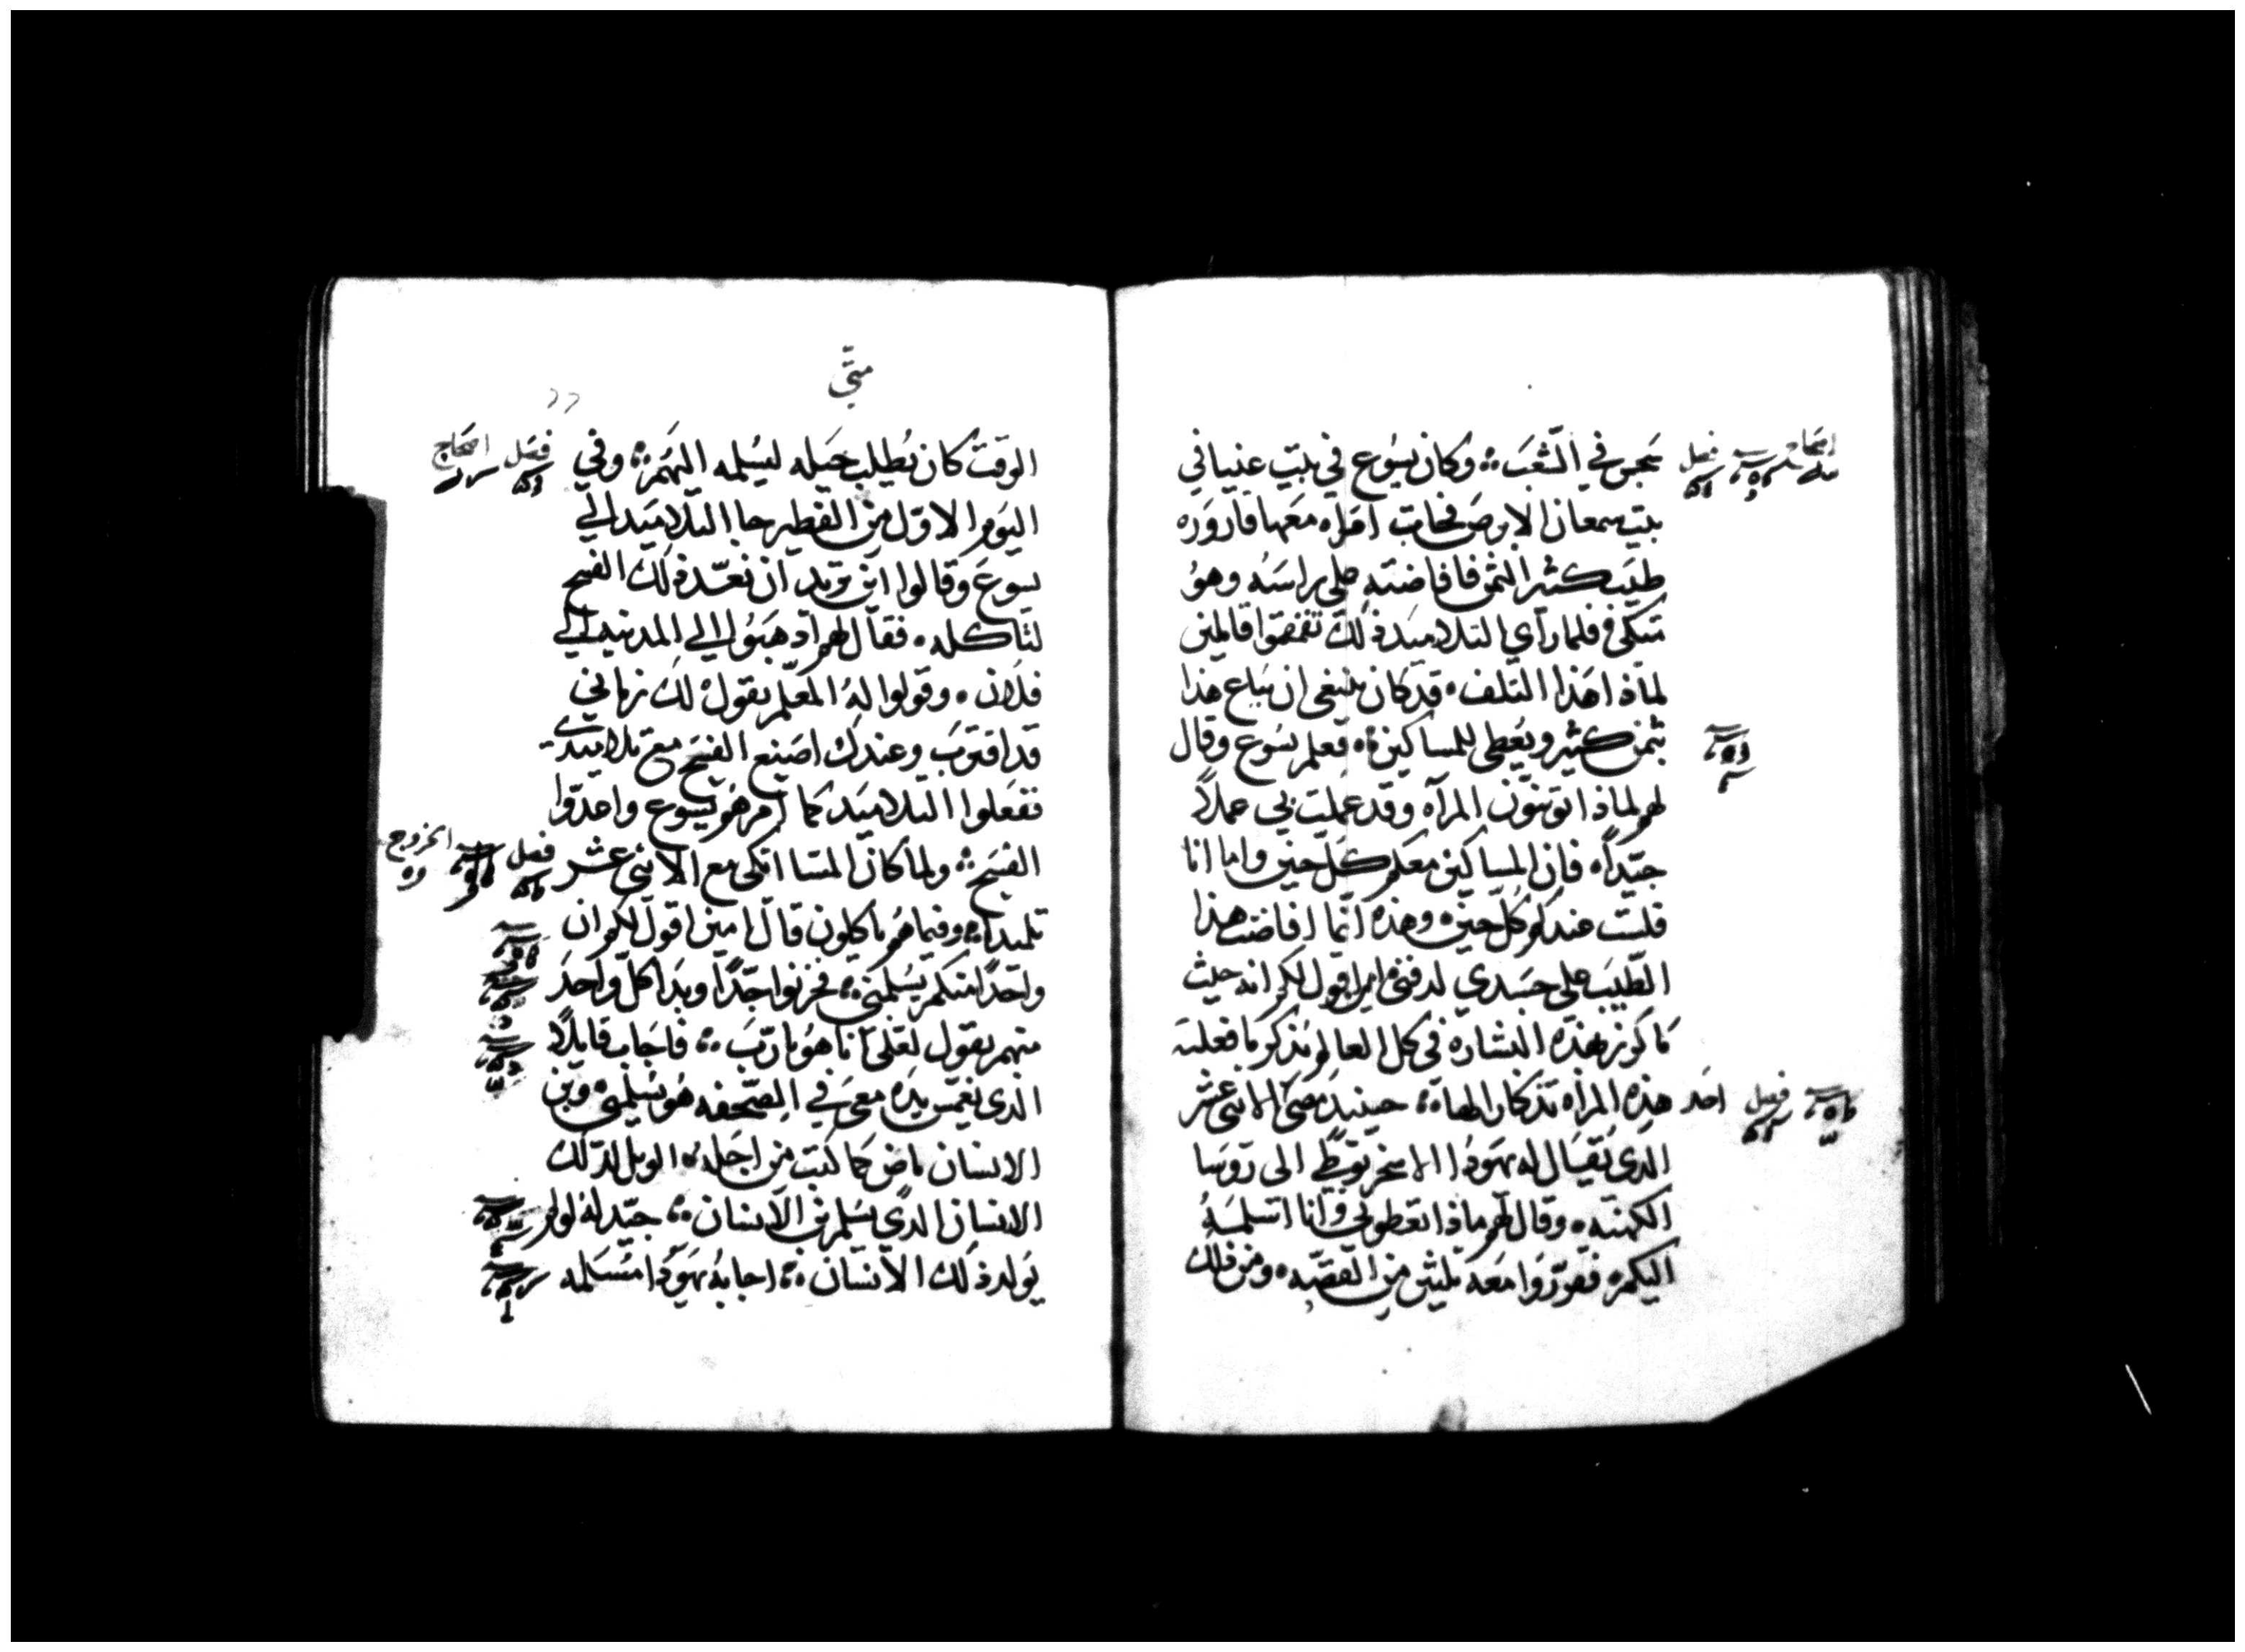 سجس في الشعب ܀ وكان يسوع في بيت عنيا في
بيت سمعان الابرص فجات امراه معها قاروره
طيب كثير الثمن فافاضته على راسه وهو
متكى فلما راي التلاميد ذلك تقمقموا قايلين
لماذا هذا التلف ٠ قد كان ينبغى ان يباع هذا
بثمن كثير ويعطى للمساكين ٠ فعلم يسوع وقال
لهم لماذا توبخون المرآه وقد عملت بي عملاً
جيّداً ٠ فان المساكين معكم كل حين واما انا
فلست عندكم كل حين ٠ وهذه انما افاضت هذا
الطيب على جسدي لدفنى امين اقول لكم انه حيث
ما كرز بهذه البشاره في كل العالم يذكر ما فعلته
هذه المرآه تذكارا لها ܀ حينيد مضى الاثنى عشر احد فصل
الدى يقال له يهودا الاسخريوطي الى روسا
الكهنه ٠ وقال لهم ماذا تعطوني وانا اسلمه
اليكم ٠ فقرروا معه ثلثين من الفضه ٠ ومن ذلك
متّي
الوقت كان يطلب حيله ليسلمه اليهم ܀ وفي فصل اصحاح
اليوم الاول من الفطير جا التلاميد الي
يسوع وقالوا اين تريد ان نعدّ لك الفسح
لتاكله ٠ فقال لهم اذهبوا الي المدينه الي
فلان ٠ وقولوا له المعلم يقول لك زماني
قد اقترب وعندك اصنع الفسح مع تلاميدي
ففعلوا التلاميد كما امرهم يسوع واعدّوا
الفسح ܀ ولما كان المسا اتكى مع الاثني عشر فصل الخروج
تلميدا ܀ وفيما هم ياكلون قال امين اقول لكم ان
واحدًا منكم يسلمني ܀ فحزنوا جدًا وبدا كل واحد
منهم يقول لعلى انا هو يا رب ܀ فاجاب قايلاً
الدى يغمس يده معى في الصحفه هو يسلمنى وبن
الانسان ماض كما كتب من اجله ٠ الويل لذلك
الانسان الدي يسلم بن الانسان ܀ جيّد له لو لم
يولد ذلك الانسان ܀ اجابه يهودا مسلمه